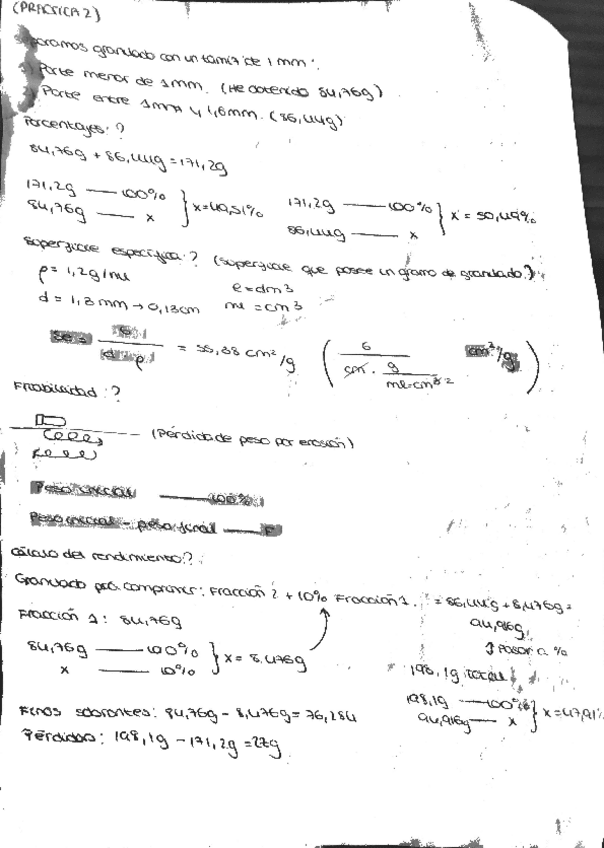 (PRÁCTICA 2)
Separamos granulado con un tamiz de 1 mm:
Parte menor de 1mm. (He obtenido 84,76g)
Parte entre 1mm y 1,6mm. (86,44g)
Porcentajes:?
84,76g + 86,44g = 171,2g
171,2g — 100%
84,76g — x } x = 49,51%
171,2g — 100%
86,44g — x } x = 50,49%
Superficie específica:? (superficie que posee un gramo de granulado?)
ρ = 1,2g/ml
ℓ = dm3
d = 1,3mm → 0,13cm
ml = cm3
Se = 6 / d · ρ = 38,38 cm²/g ( 6 / cm · g / ml=cm3 2 cm²/g )
Friabilidad:?
(Pérdida de peso por erosión)
Peso inicial — 100%
Peso inicial - peso final — F
Cálculo del rendimiento?
Granulado para comprimir: Fracción 2 + 10% Fracción 1. = 86,44g + 8,476g =
94,916g
Fracción 1: 84,76g
Pasar a %
84,76g — 100%
x — 10% } x = 8,476g
198,1g total
198,1g — 100%
94,916g — x } x = 47,91%
Finos sobrantes: 84,76g - 8,476g = 76,284
Pérdidas: 198,1g - 171,2g = 27g